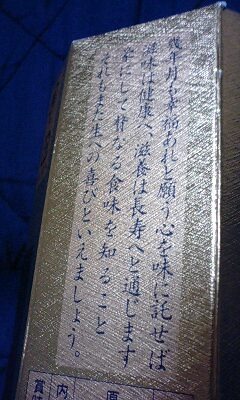 幾年月も幸福あれと願う心を味に託せば
滋味は健康へ、滋養は長寿へと通じます
楽にして贅なる食味を知ること
それもまた生への喜びといえましょう。
原
内
賞